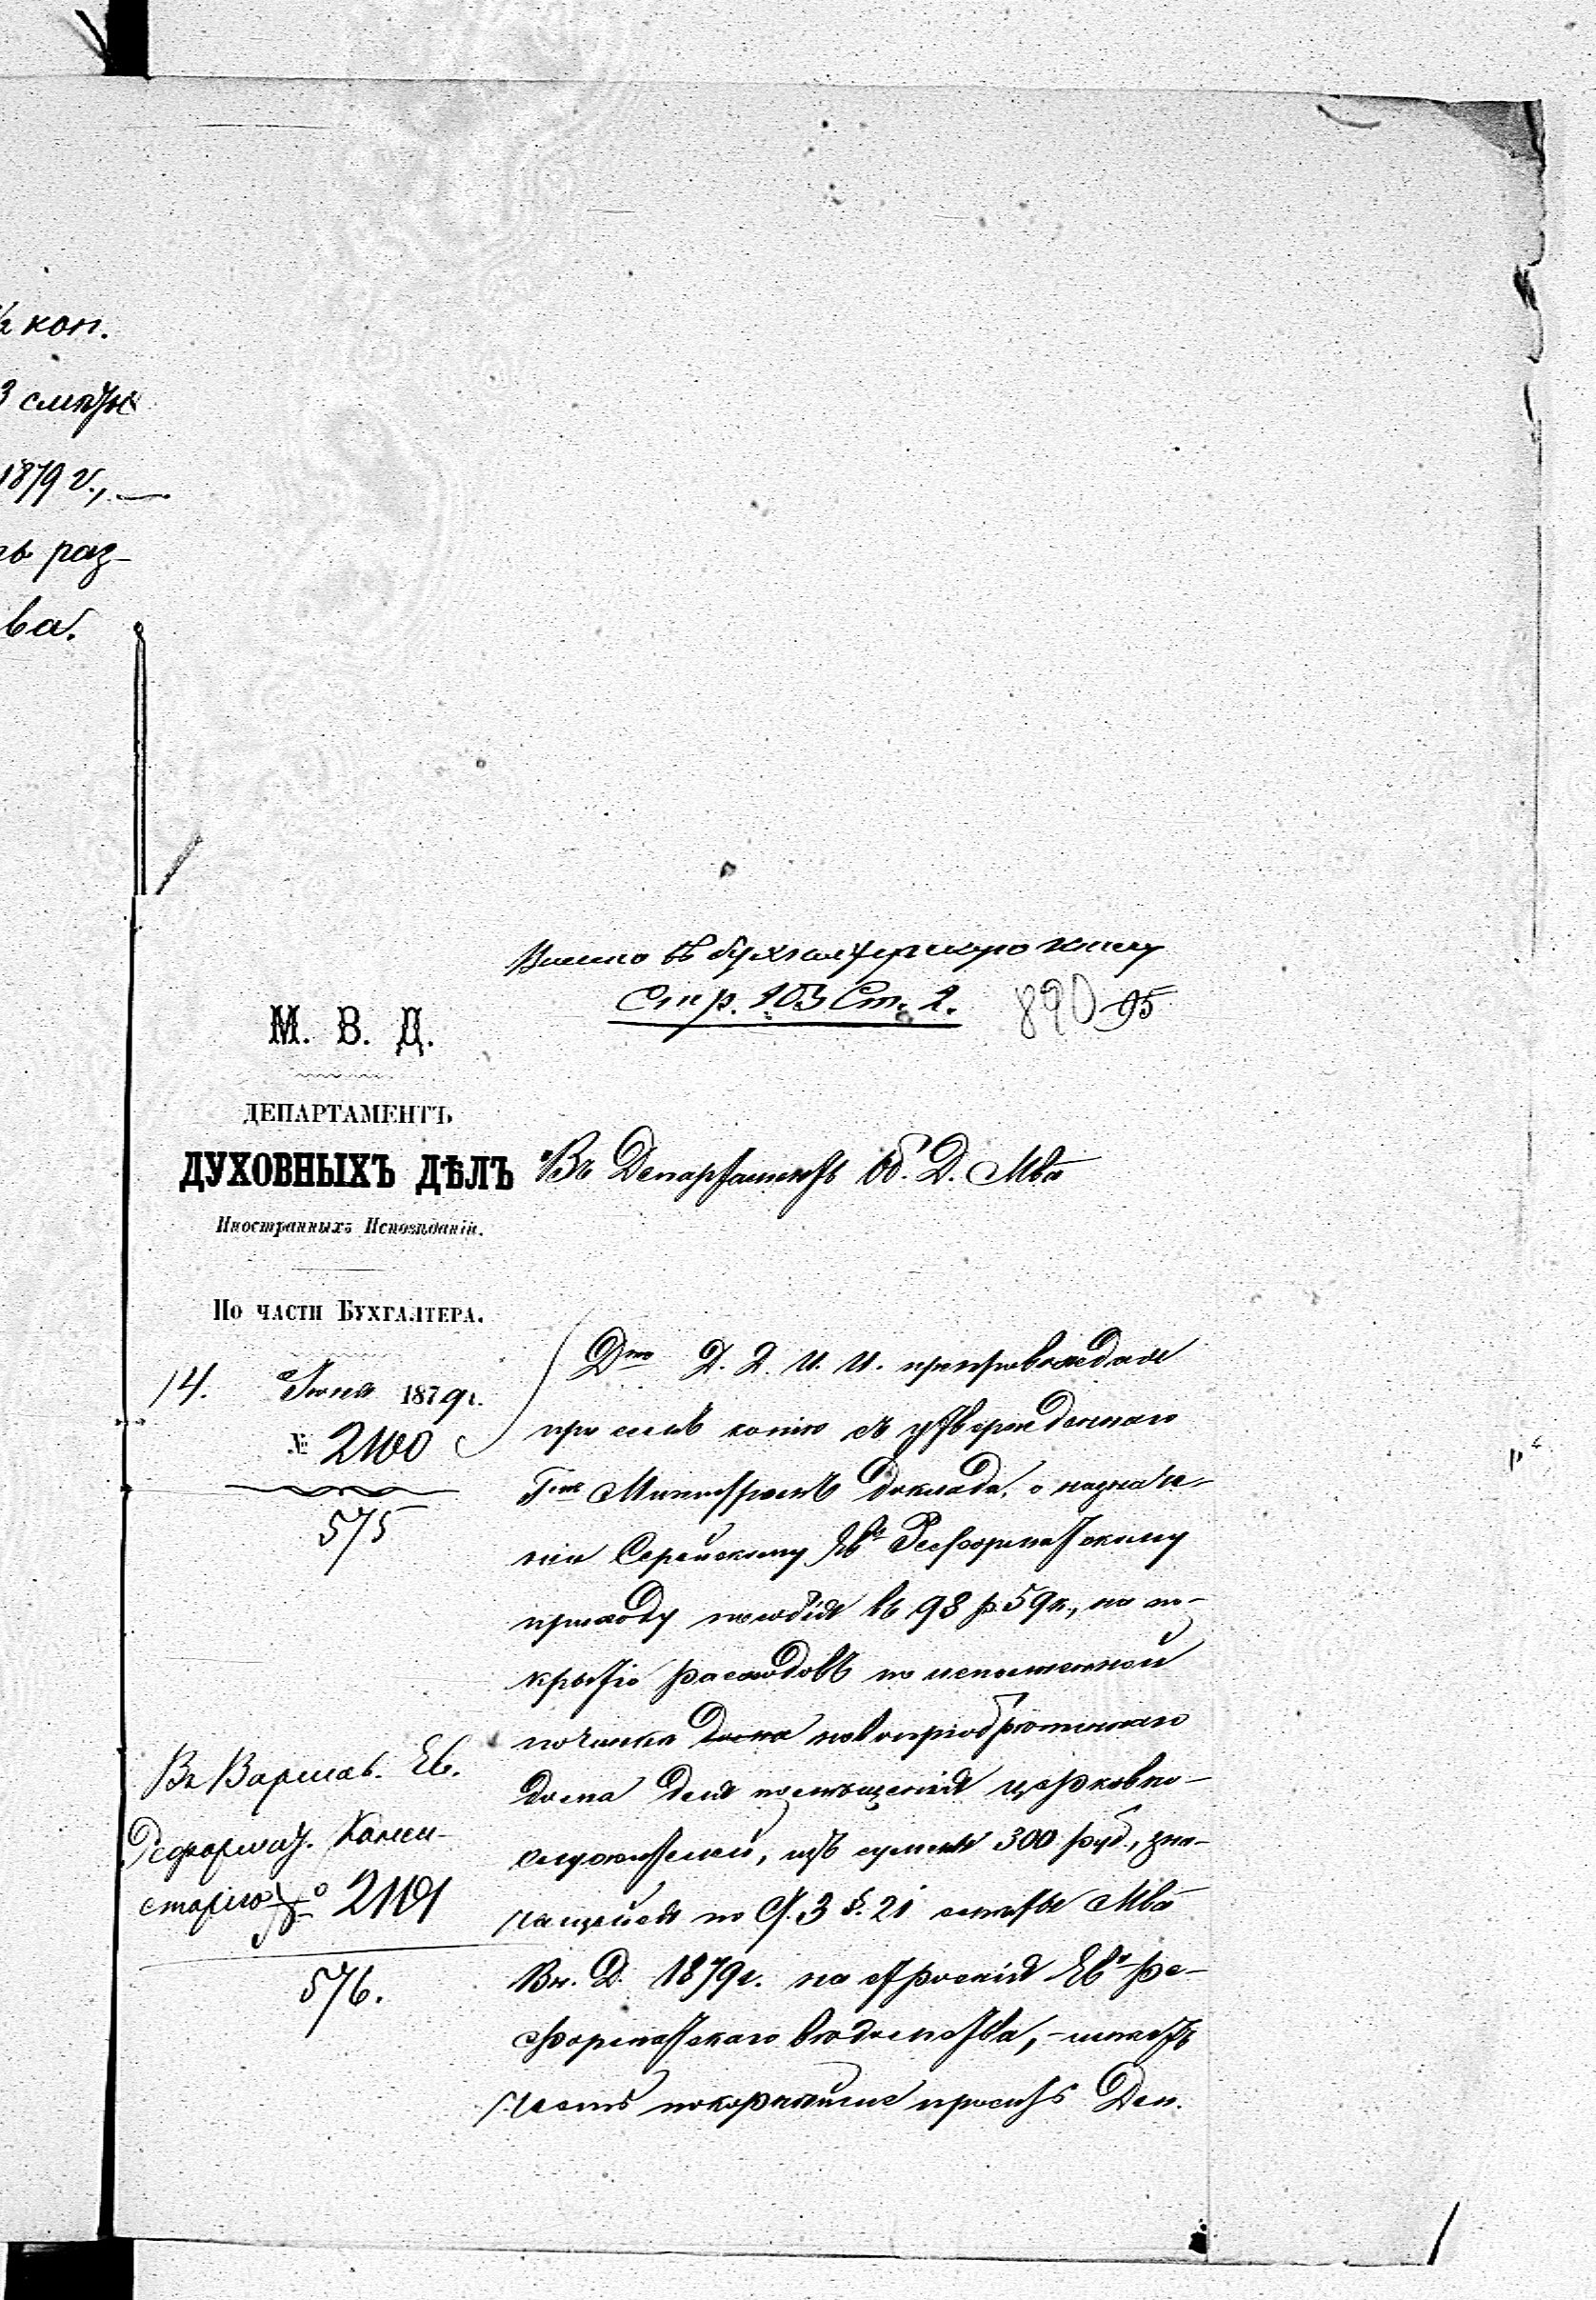 ½ коп.
3 смѣты
1879 г., —
ть раз-
ва.
Внесено въ бухгалтерскую книгу
Стр. 103 Ст. 2. 890 95
М. В. Д.
ДЕПАРТАМЕНТЪ
ДУХОВНЫХЪ ДѢЛЪ
Иностранныхъ Исповѣданій.
По части Бухгалтера.
14. Іюня 1879 г.
№ 2100
575
Въ Варшав. Ев.
Реформат. Конси-
сторію № 2101
576.
Въ Департаментъ Об. Д. Мва
Дтъ Д. Д. И. И. препровождая
при семъ копію съ утвержденнаго
Гмъ Министромъ доклада, о назначе-
ніи Серейскому Ев. Реформатскому
приходу пособія въ 98 р. 59 к., на по-
крытіе расходовъ по исполненной
починкѣ дома новопріобрѣтеннаго
дома для помѣщенія церковно-
служителей, изъ суммы 300 руб., зна-
чащейся по С. 3 §. 21 смѣты Мва
Вн. Д. 1879 г. на строенія Ев. ре-
форматскаго вѣдомства, – имѣетъ
честь покорнѣйше просить Деп.